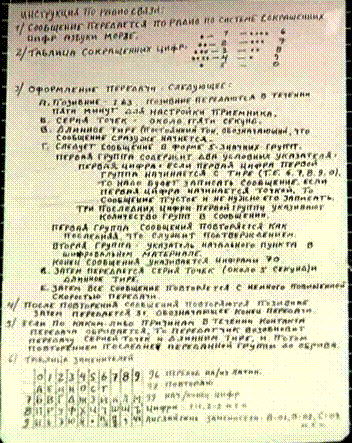 ИНСТРУКЦИЯ ПО РАДИО СВЯЗИ:
1/ СООБЩЕНИЕ ПЕРЕДАЕТСЯ ПО РАДИО ПО СИСТЕМЕ СОКРАЩЕННЫХ
ЦИФР АЗБУКИ МОРЗЕ.
2/ ТАБЛИЦА СОКРАЩЕННЫХ ЦИФР:
3/ ОФОРМЛЕНИЕ ПЕРЕДАЧИ - СЛЕДУЮЩЕЕ:
А. ПОЗЫВНЫЕ - ПОЗЫВНЫЕ ПЕРЕДАЮТСЯ В ТЕЧЕНИИ
ПЯТИ МИНУТ ДЛЯ НАСТРОЙКИ ПРИЕМНИКА.
Б. СЕРИЯ ТОЧЕК - ОКОЛО ПЯТИ СЕКУНД.
В. ДЛИННОЕ ТИРЕ (ПОСТОЯННЫЙ ТОН, ОБОЗНАЧАЮЩИЙ, ЧТО
СООБЩЕНИЕ СРАЗУ ЖЕ НАЧНЕТСЯ.
Г. СЛЕДУЕТ СООБЩЕНИЕ В ФОРМЕ 5-ЗНАЧНЫХ ГРУПП.
ПЕРВАЯ ГРУППА СОДЕРЖИТ ДВА УСЛОВНЫХ УКАЗАТЕЛЯ:
ПЕРВАЯ ЦИФРА: ЕСЛИ ПЕРВАЯ ЦИФРА ПЕРВОЙ
ГРУППЫ НАЧИНАЕТСЯ С ТИРЕ (Т.Е. 6, 7, 8, 9, 0),
ТО НАДО БУДЕТ ЗАПИСАТЬ СООБЩЕНИЕ. ЕСЛИ
ПЕРВАЯ ЦИФРА НАЧИНАЕТСЯ ТОЧКОЙ, ТО
СООБЩЕНИЕ ПУСТОЕ И НЕ НУЖНО ЕГО ЗАПИСАТЬ.
ТРИ ПОСЛЕДНИХ ЦИФРЫ ПЕРВОЙ ГРУППЫ УКАЗЫВАЮТ
КОЛИЧЕСТВО ГРУПП В СООБЩЕНИИ.
ПЕРВАЯ ГРУППА СООБЩЕНИЯ ПОВТОРЯЕТСЯ КАК
ПОСЛЕДНЯЯ, ЧТО СЛУЖИТ ПОДТВЕРЖДЕНИЕМ.
ВТОРАЯ ГРУППА - УКАЗАТЕЛЬ НАЧАЛЬНОГО ПУНКТА В
ШИФРОВАЛЬНОМ МАТЕРИАЛЕ.
КОНЕЦ СООБЩЕНИЯ УКАЗЫВАЕТСЯ ЦИФРАМИ
ЗАТЕМ ПЕРЕДАЕТСЯ СЕРИЯ ТОЧЕК (ОКОЛО 5 СЕКУНД) И
ДЛИННОЕ ТИРЕ.
Е. ЗАТЕМ ВСЕ СООБЩЕНИЕ ПОВТОРЯЕТСЯ С НЕМНОГО ПОВЫШЕННОЙ
СКОРОСТЬЮ ПЕРЕДАЧИ
4/ ПОСЛЕ ПОВТОРЕНИЯ СООБЩЕНИЯ ПОВТОРЯЕТСЯ ПОЗЫВНЫЕ
ЗАТЕМ ПЕРЕДАЕТСЯ ОБОЗНАЧАЮЩЕЕ КОНЕЦ ПЕРЕДАЧИ
5/ ЕСЛИ ПО КАКИМ-ЛИБО ПРИЧИНАМ В ТЕЧЕНИИ КОНТАКТА
ПЕРЕДАЧА ОБРЫВАЕТСЯ, ТО ПЕРЕДАТЧИК ВОЗОБНОВИТ
ПЕРЕДАЧУ СЕРИЕЙ ТОЧЕК И ДЛИННЫМ ТИРЕ, И ПОТОМ
ПОВТОРЕНИЕМ ПОСЛЕДНЕЙ ПЕРЕДАННОЙ ГРУППЫ ДО ОБРЫВА.
6/ ТАБЛИЦА ЗАМЕНИТЕЛЕЙ
0 1 2 3 4 5 6 7 8 9
ПОВТОРЯЮ
НАЧ/КОНЕЦ ЦИФР